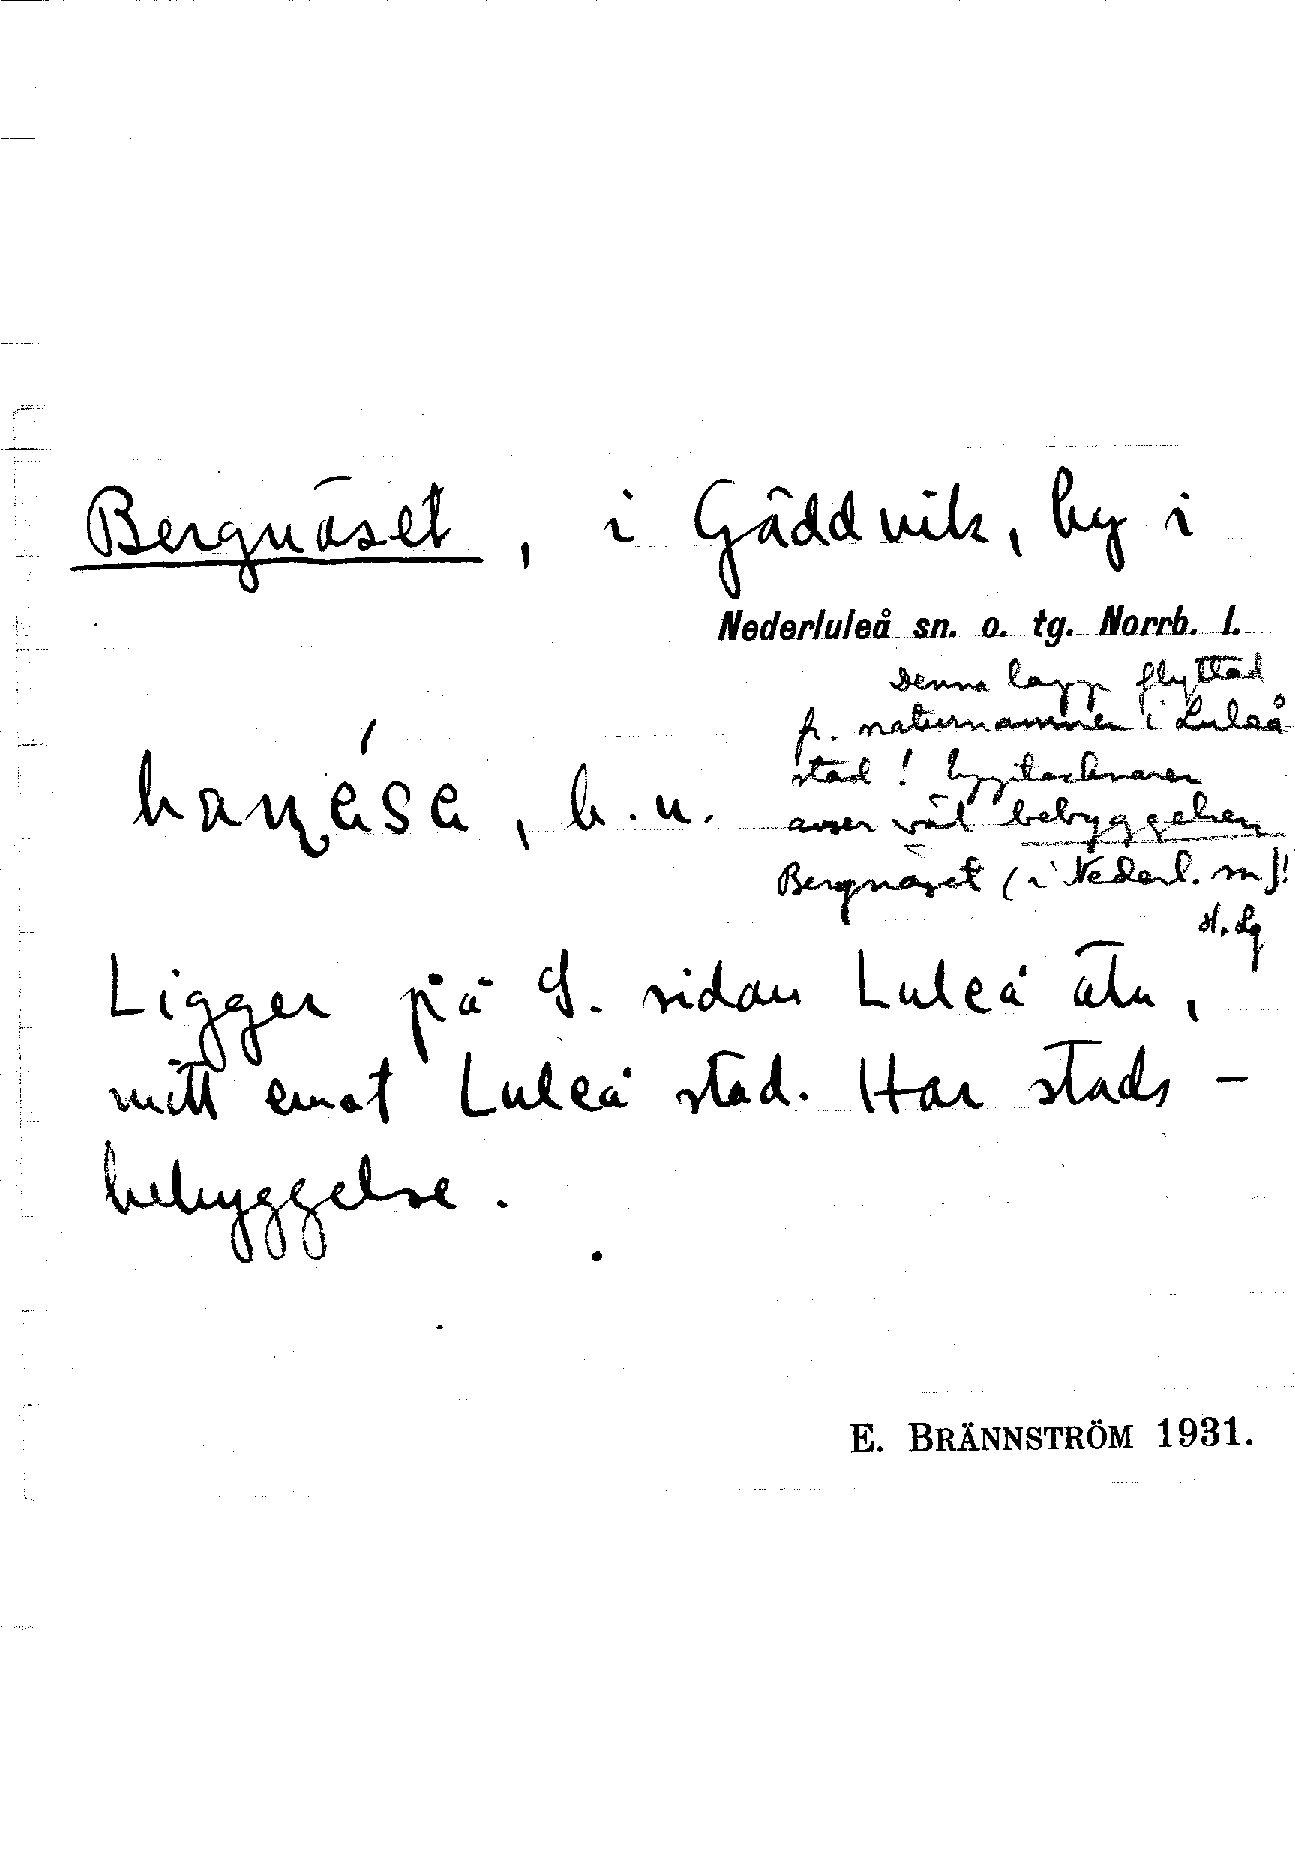 Bergnäset, i Gäddvik, by i
Nederluleå sn. o. tg. Norrb. l.
Denna lapp flyttad
fr. naturnamnen i Luleå
stad! Upptecknaren
avser väl bebyggelsen
Bergnäset (i Nederl. sn)!
H. Lg
Ligger på S. sidan Luleå älv,
mitt emot Luleå stad. Har stads-
bebyggelse.
E. BRÄNNSTRÖM 1931.